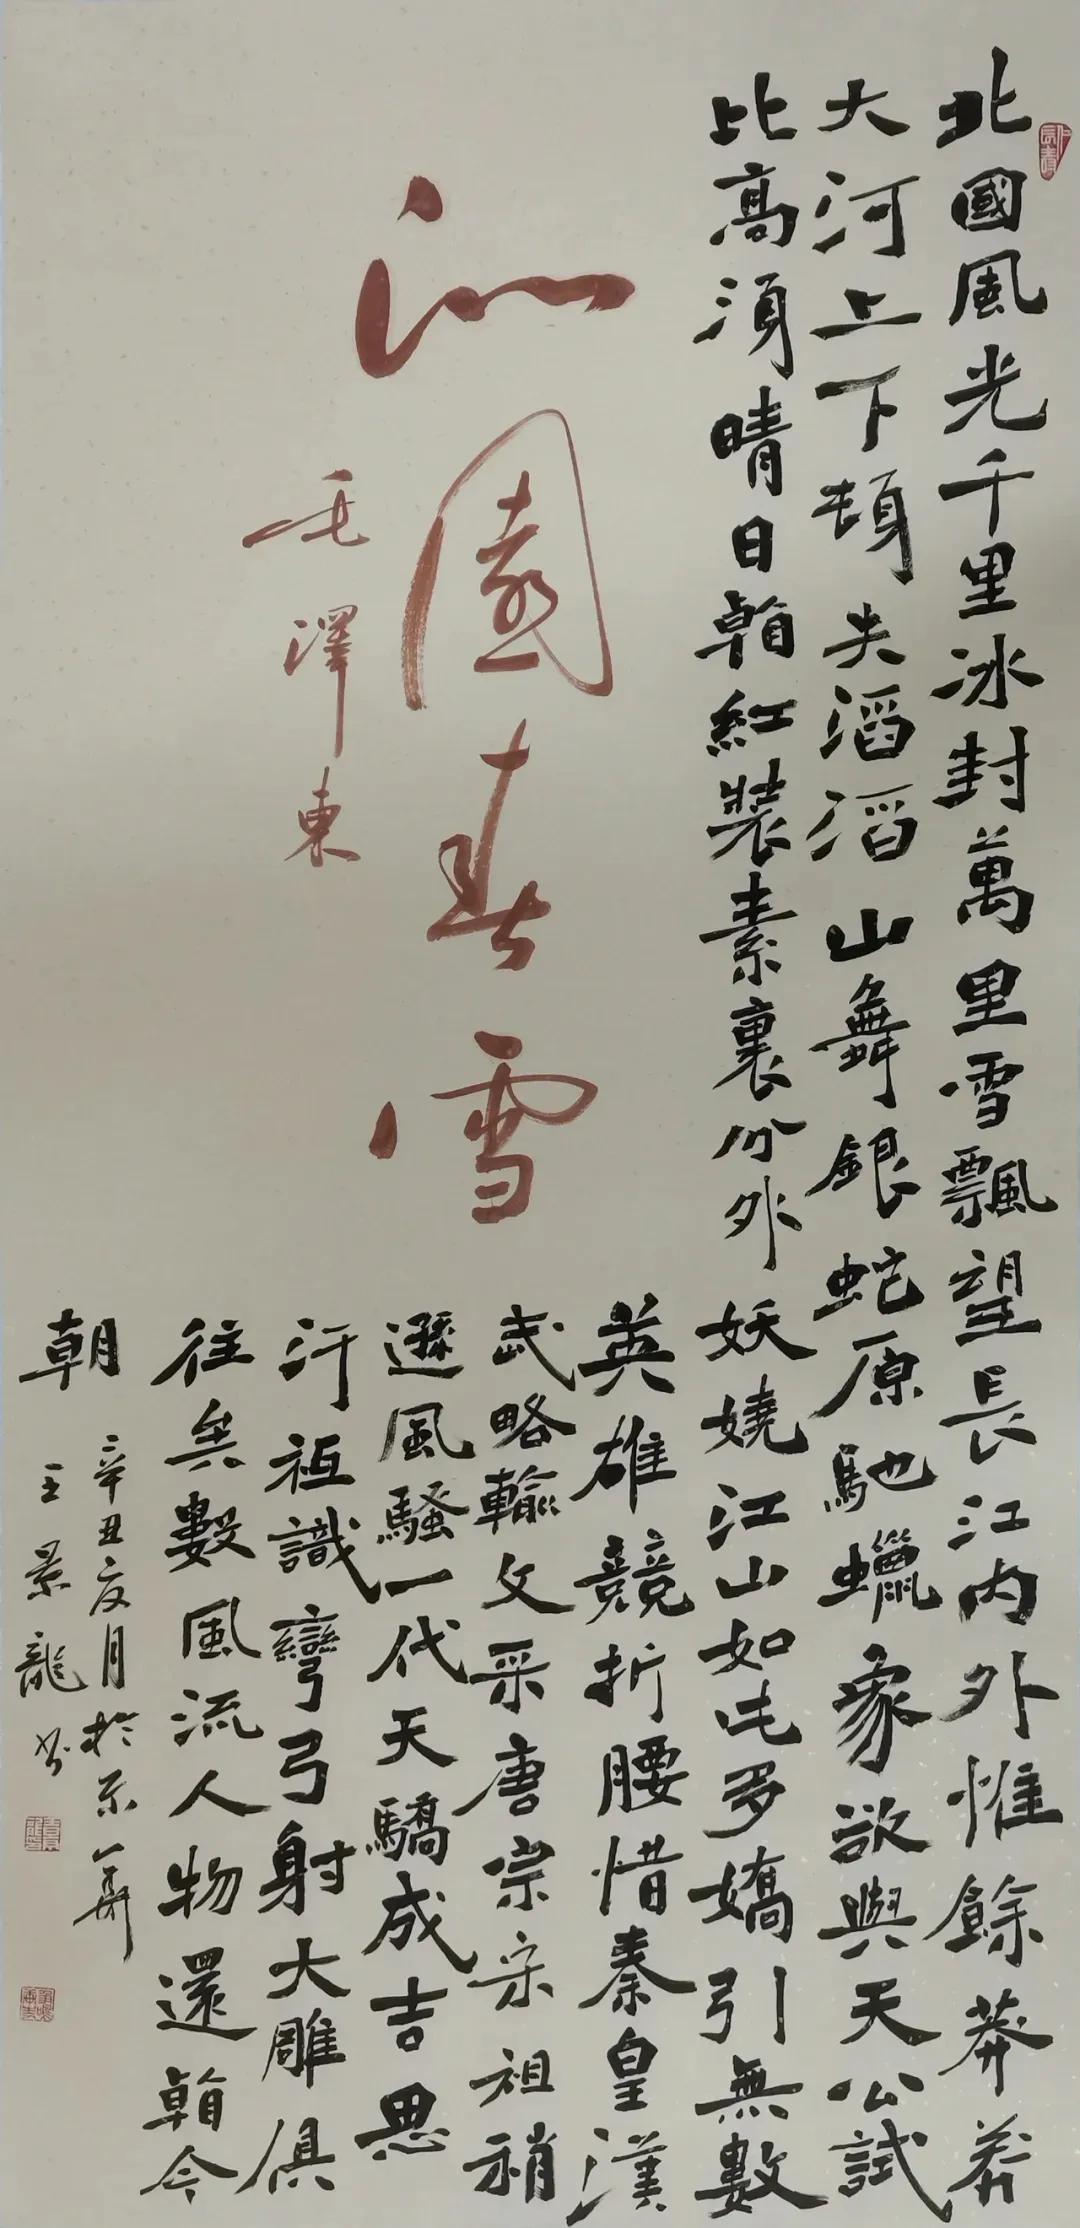 北國風光千里冰封萬里雪飄望長江内外惟餘莽莽
大河上下頓失滔滔山舞銀蛇原馳蠟象欲與天公試
比高須晴日看紅裝素裹分外妖嬈江山如此多嬌引無數
英雄競折腰惜秦皇漢
武略輸文采唐宗宋祖稍
遜風騷一代天驕成吉思
汗祗識彎弓射大雕俱
往矣數風流人物還看今
朝
沁園春雪
毛澤東
辛丑夏月於京華
王景龍书